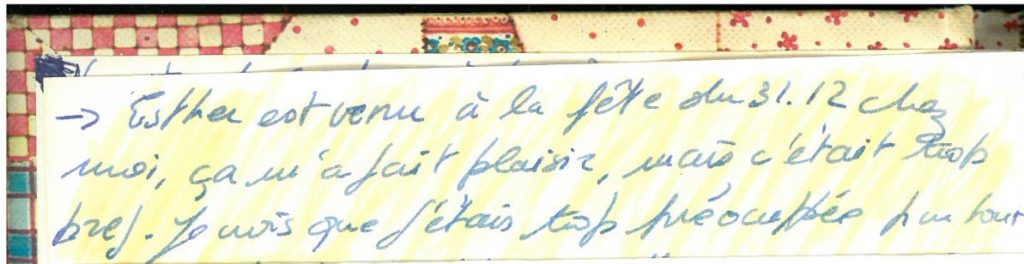 → Esther est venu à la fête du 31.12 chez
moi, ça m'a fait plaisir, mais c'était trop
bref. Je crois que j'étais trop préoccupée